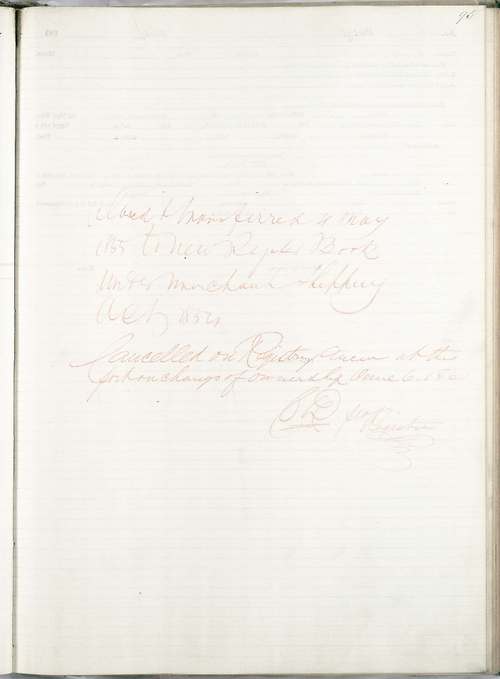 95
& transferred 4 May
1855 to New Register Book
under Merchant Shipping
Act of 1854
Cancelled on Registry Anew at this
port on change of ownership June 6
Registrar